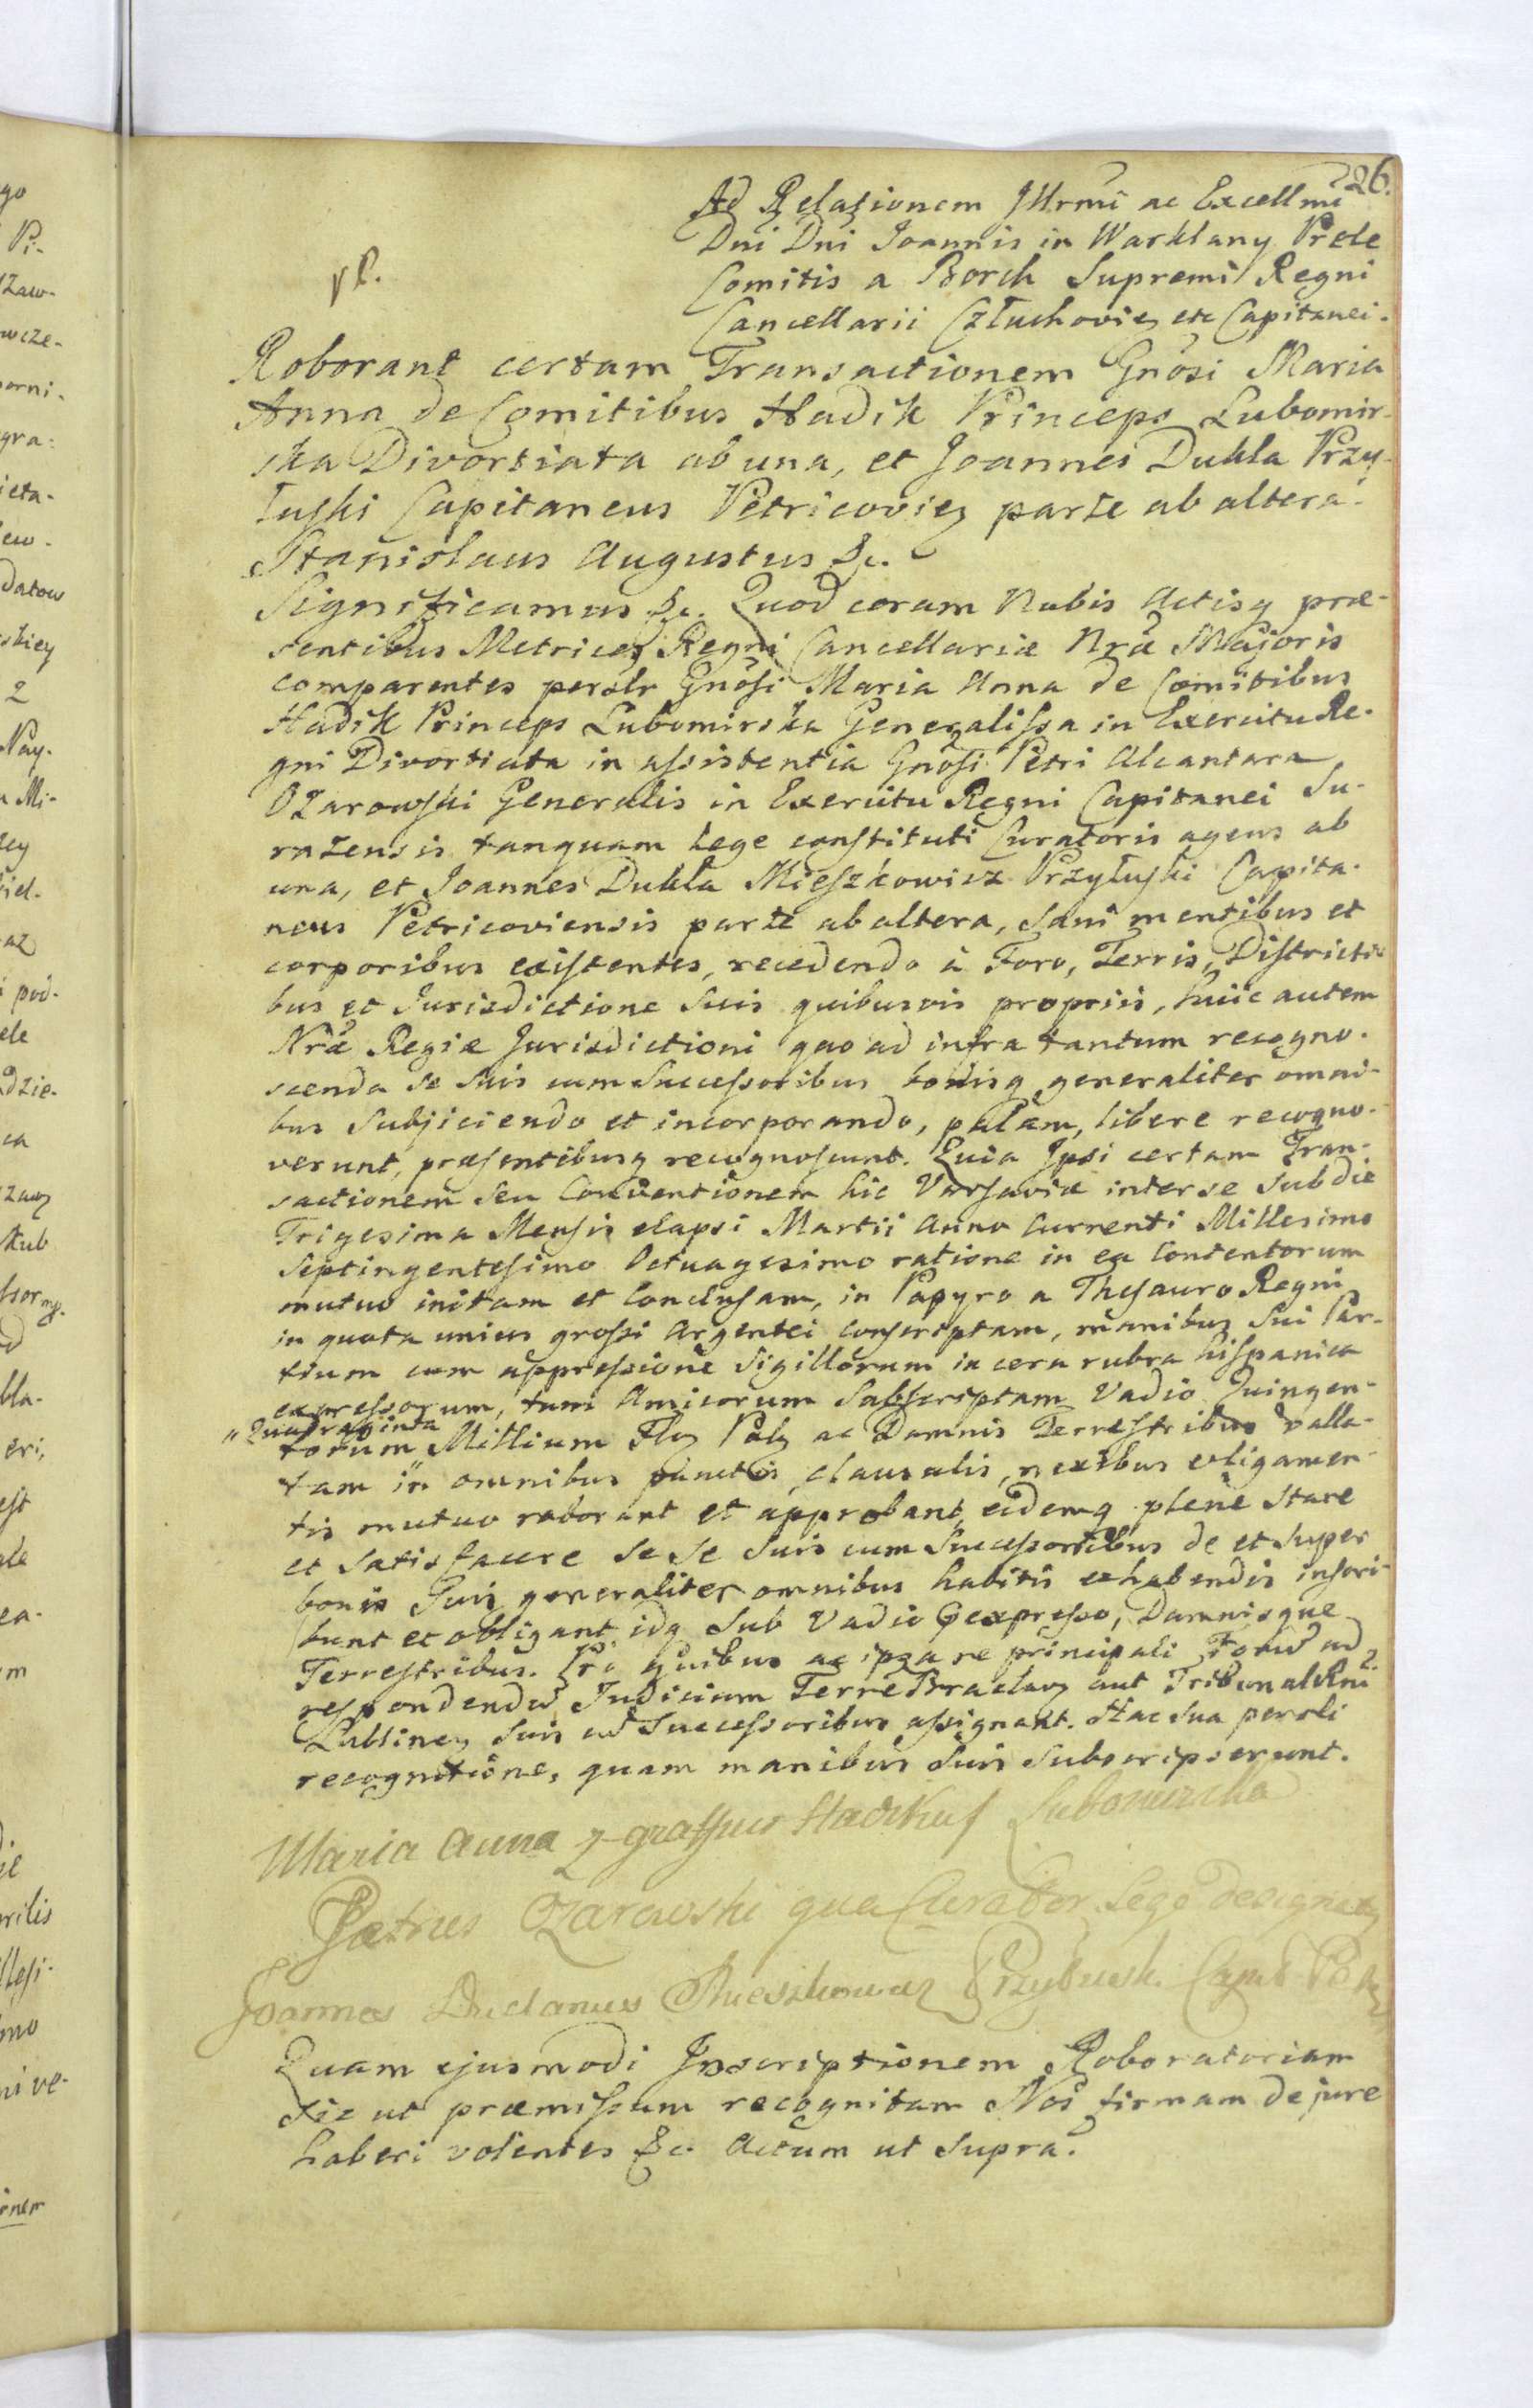 26.
Ad Relationem Illrmi ac Excellmi
Dni Dni Joannis in Warklany Prele
Comitis a Borch Supremi Regni
Cancellarii Człuchovieŋ etc Capitanei.
Roborant certam Transactionem Gnosi Maria
Anna de Comitibus Hadik Princeps Lubomir-
ska Divortiata ab una, et Joannes Dukla Przy-
łuski Capitaneus Petricovieŋ parte ab altera.
Stanislaus Augustus &c.
Significamus &c. Quod coram Nobis Actisq præ-
sentibus Metrices Regni Cancellariæ Nræ Majoris
comparentes personlr Gnosi Maria Anna de Comitibus
Hadik Princeps Lubomirska Generalissa in Exercitu Re-
gni Divortiata in assistentia Gnosi Petri Alcantara
Ozarowski Generalis in Exercitu Regni Capitanei Su-
razensis tanquam Lege constituti Curatoris agens ab
una, et Joannes Dukla Mieszkowicz Przyłuski Capita-
neus Petricoviensis parte ab altera, sani mentibus et
corporibus existentes, recedendo à Foro, Terris, Districti-
bus et Jurisdictione Suis quibusvis propriis, huic autem
Nræ Regiæ Jurisdictioni quo ad infra tantum recogno-
scenda se suis cum Successoribus bonisq generaliter omni-
bus Subjiciendo et incorporando, palam, libere recogno-
verunt, præsentibusq recognoscunt. Quia Ipsi certam Tran-
sactionem seu Conventionem hic Varsaviæ inter se sub die
Trigesima Mensis elapsi Martii Anno Currenti Millesimo
Septingentesimo Octuagesimo ratione in ea Contentorum
mutuo initam et Conclusam, in Papyro a Thesauro Regni
in quota unius grossi Argentei Conscriptam, manibus Sui Par-
tium cum appressione Sigillorum in cera rubra hispanica
expressorum, tum Amicorum Subscriptam Vadio Quingen-
"Quadraginta
torum " Millium Flŋ Polŋ ac Damnis Terrestribus valla-
tam in omnibus punctis, clausulis, nexibus obligamen-
tis mutuo roborant et approbant, eidemq plene Stare
et Satisfacere se se Suis cum Successoribus de et super
bonis Suis generaliter omnibus habitis et habendis inscri-
bunt et obligant idq sub Vadio expresso, Damnisque
Terrestribus. Pro quibus ac ipsa re principali Forũ ad
respondendũ Judicium Terre Braclavŋ aut Tribunal Rni
Lublineŋ Suis cũ Successoribus assignant. Hac sua personli
recognitione, quam manibus Suis Subscripserunt.
Maria Anna z grafsuw Hadikuf Lubomirska
Petrus Ozarowski qua Curator Lege designatq
Joannes Duclanus Mieszkowicz Przyłuski Capit
Quam ejusmodi Inscriptionem Roboratoriam
sic ut præmissum recognitam Nos firmam de jure
haberi volentes &c. Actum ut Supra.